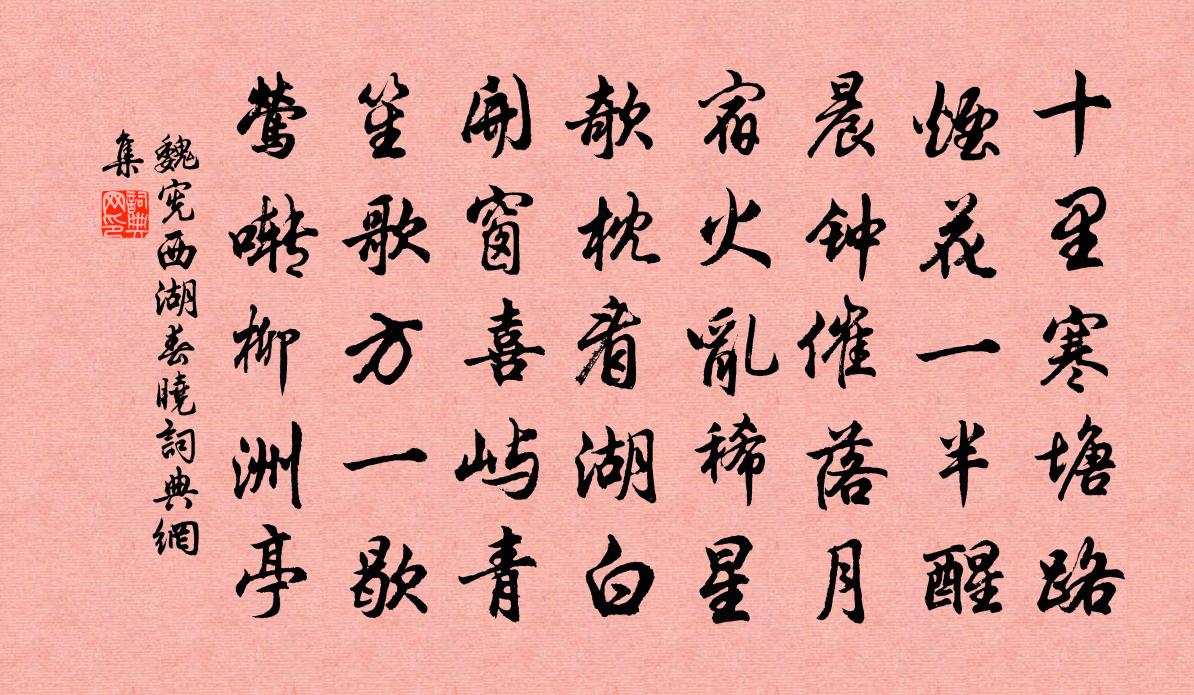 十里寒塘路
煙花一半醒
晨钟催落月
宿火亂稀星
欹枕看湖白
開窗喜屿青
笙歌方一歇
鶯啭柳洲亭
魏宪西湖春曉詞典網
集
詞典网印